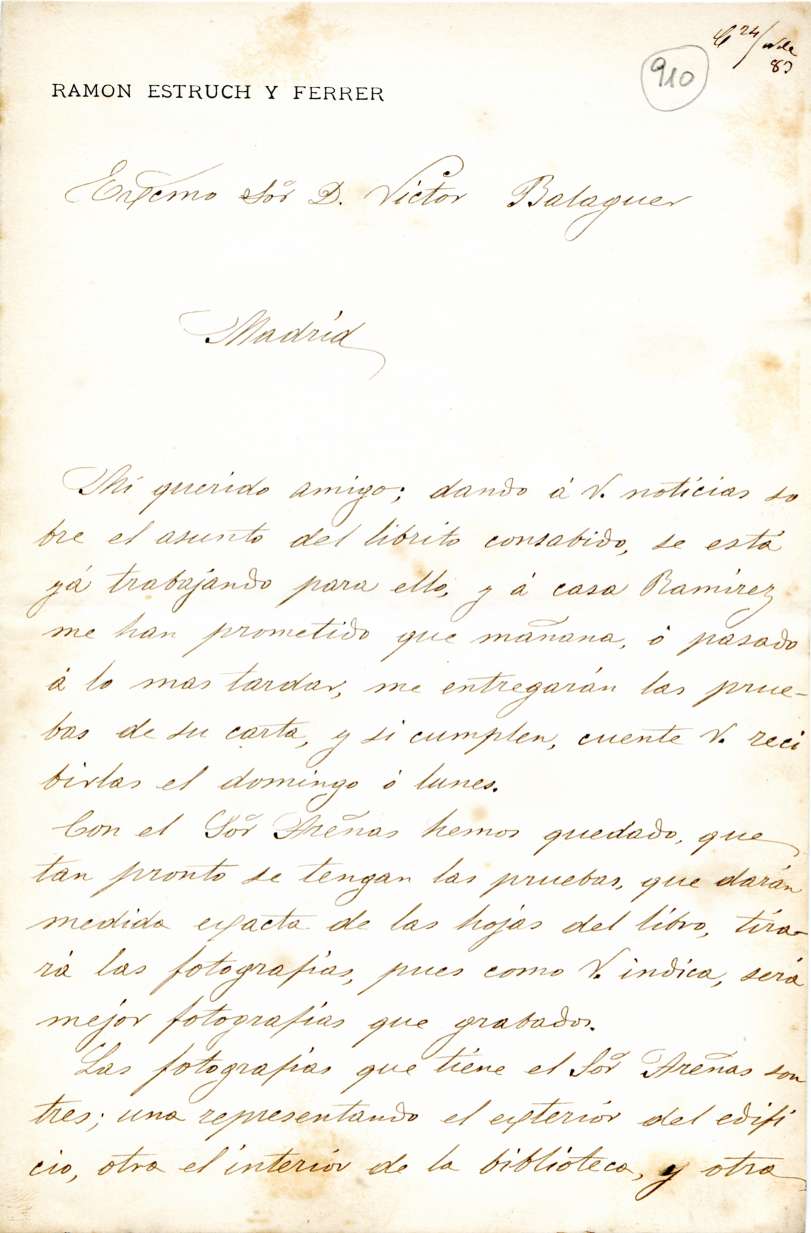 24/
83
910
RAMON ESTRUCH Y FERRER
Excmo Sor D. Victor Balaguer
Madrid
Mi querido amigo; dando á V. noticias so
bre el asunto del librito consabido, se está
yá trabajando para ello, y á casa Ramirez
me han prometido que mañana, ó pasado
á lo mas tardar, me entregarán las prue-
bas de su carta, y si cumplen, cuente V. reci
birlas el domingo ó lunes.
Con el Sor Areñas hemos quedado, que
tan pronto se tengan las pruebas, que darán
medida exacta de las hojas del libro, tira-
rá las fotografias, pues como V. indica, será
mejor fotografias que grabados.
Las fotografias que tiene el Sor Areñas son
tres; una representando el exteriór del edifi
cio, otra el interiór de la biblioteca, y otra